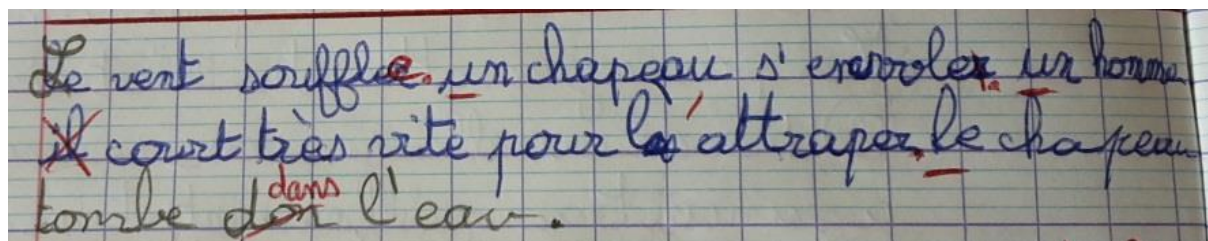 Le vent souffle. un chapeau s'envole. un homme
il court très vite pour l'attraper. le chapeau
tombe don dans l'eau.